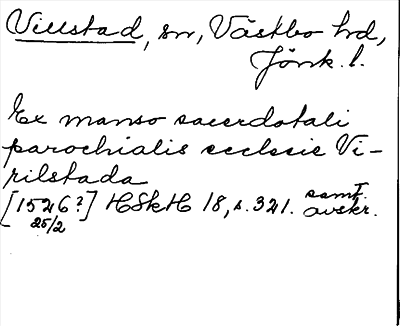 Villstad, sn, Västbo hd,
Jönk. l.
Ex manso sacerdotali
parochialis ecclesie Vi-
rilstada
[1526?] HSkH 18, s. 321. samt.
25/2 avskr.